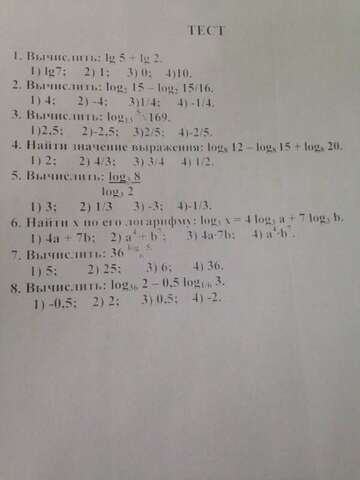 ТЕСТ
1. Вычислить: lg 5 + lg 2.
1) lg7; 2) 1; 3) 0; 4)10.
2. Вычислить: log₂ 15 – log₂ 15/16.
1) 4; 2) -4; 3)1/4; 4) -1/4.
3. Вычислить: log₁₃ ⁵√169.
1)2,5; 2)-2,5; 3)2/5; 4)-2/5.
4. Найти значение выражения: log₈ 12 – log₈ 15 + log₈ 20.
1) 2; 2) 4/3; 3) 3/4 4) 1/2.
5. Вычислить: log₃ 8
log₃ 2
1) 3; 2) 1/3 3) -3; 4)-1/3.
6. Найти x по его логарифму: log₃ x = 4 log₃ a + 7 log₃ b.
1) 4a + 7b; 2) a⁴ + b⁷; 3) 4a·7b; 4) a⁴·b⁷.
7. Вычислить: 36 log₆ 5.
1) 5; 2) 25; 3) 6; 4) 36.
8. Вычислить: log₃₆ 2 – 0,5 log₁/₆ 3.
1) -0,5; 2) 2; 3) 0,5; 4) -2.